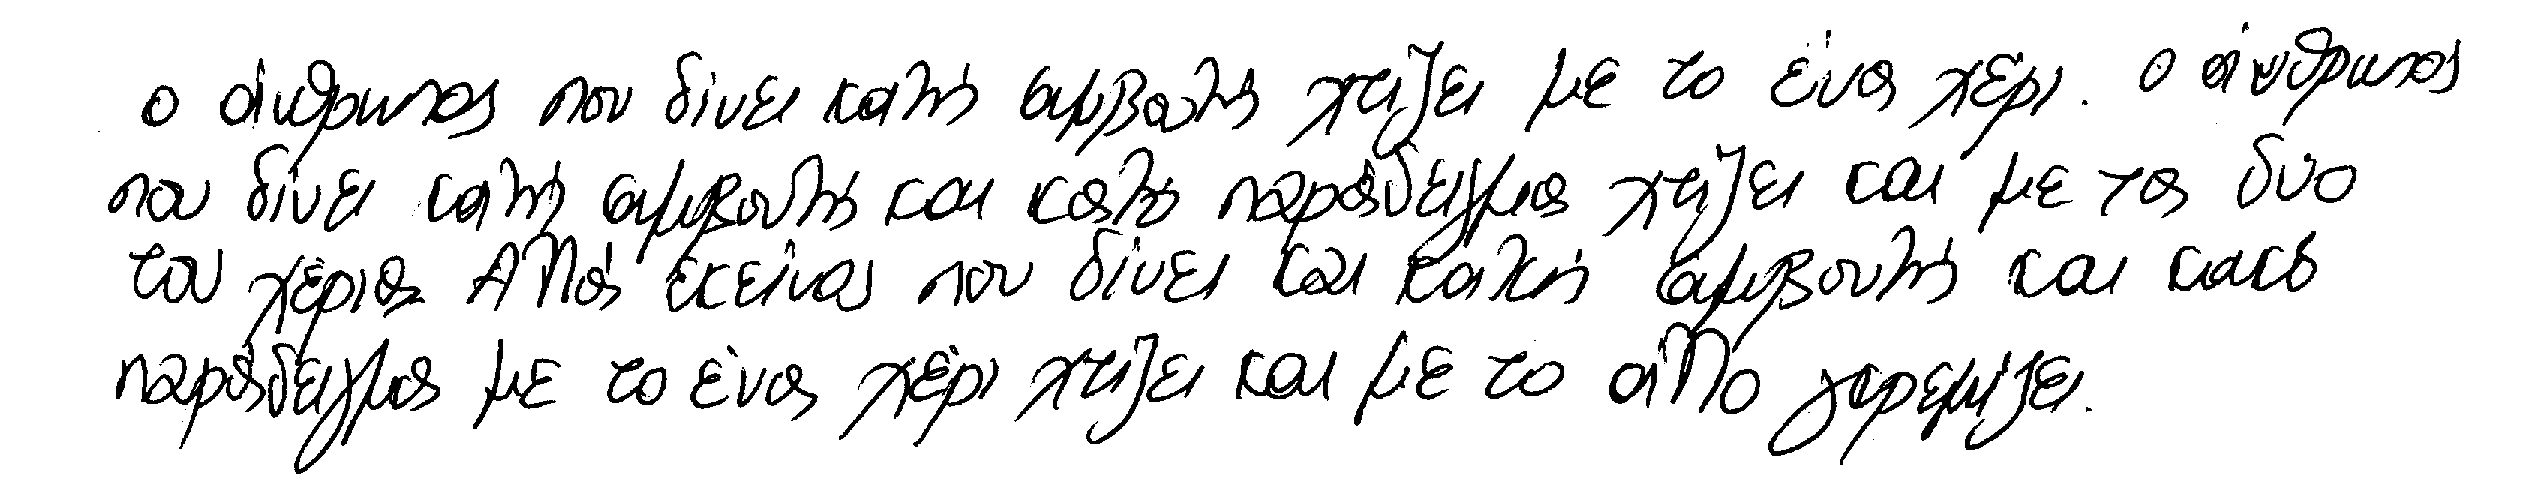 ο άνθρωπος που δίνει καλή συμβουλή χτίζει με το ένα χέρι. ο άνθρωπος
που δίνει καλή συμβουλή και καλό παράδειγμα χτίζει και με τα δυο
του χέρια. Αλλά εκείνος που δίνει και καλή συμβουλή και κακό
παράδειγμα με το ένα χέρι χτίζει και με το άλλο γκρεμίζει.